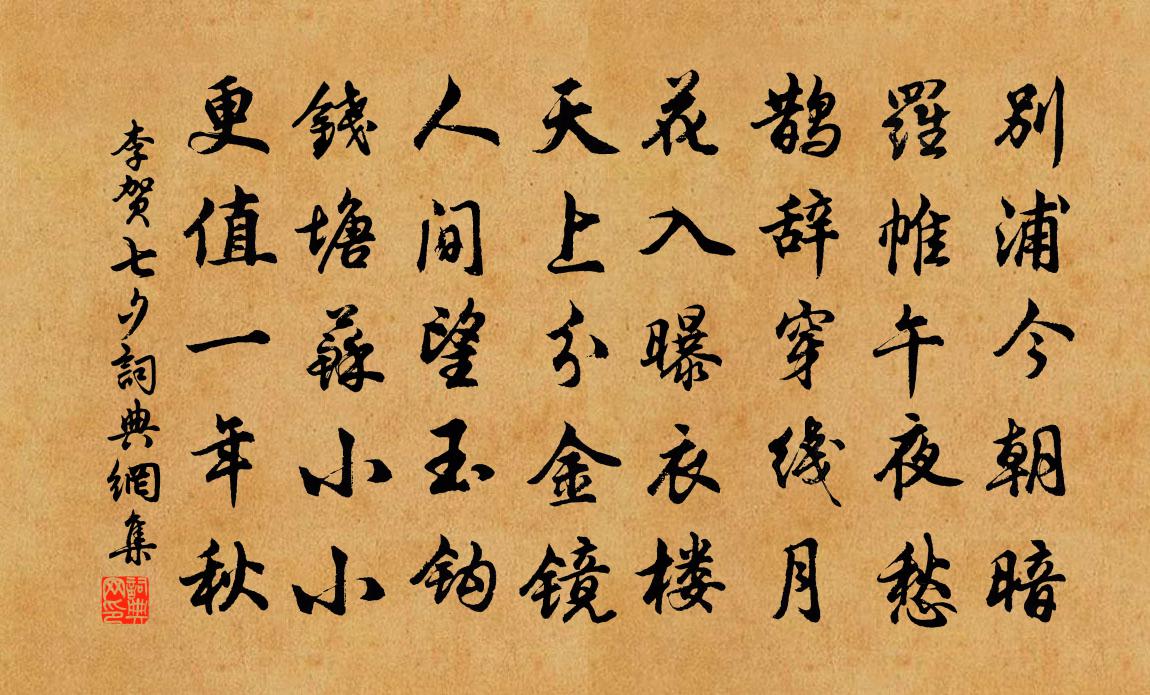 别浦今朝暗
羅帷午夜愁
鹊辞穿线月
花入曝衣楼
天上分金镜
人间望玉钩
錢塘蘇小小
更值一年秋
李贺七夕詞典網集
詞典网印